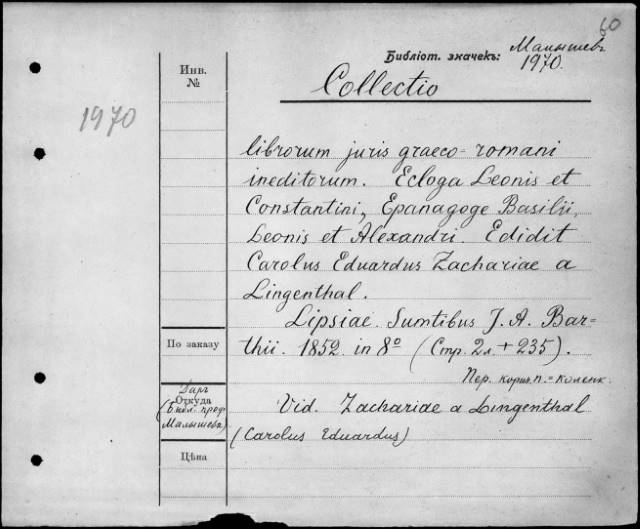 60
Библіот. значекъ: Малышевъ
1970.
Инв.
№
1970
Collectio
librorum juris graeco-romani
ineditorum. Ecloga Leonis et
Constantini, Epanagoge Basilii,
Leonis et Alexandri. Edidit
Carolus Eduardus Zachariae a
Lingenthal.
Lipsiae. Sumtibus J. A. Bar=
thii. 1852. in 8º (Стр. 2л. + 235).
По заказу
Пер. корич. п.=коленк.
Даръ
Откуда
(Библ. проф.
Малышева)
Vid. Zachariae a Lingenthal
(Carolus Eduardus)
Цѣна